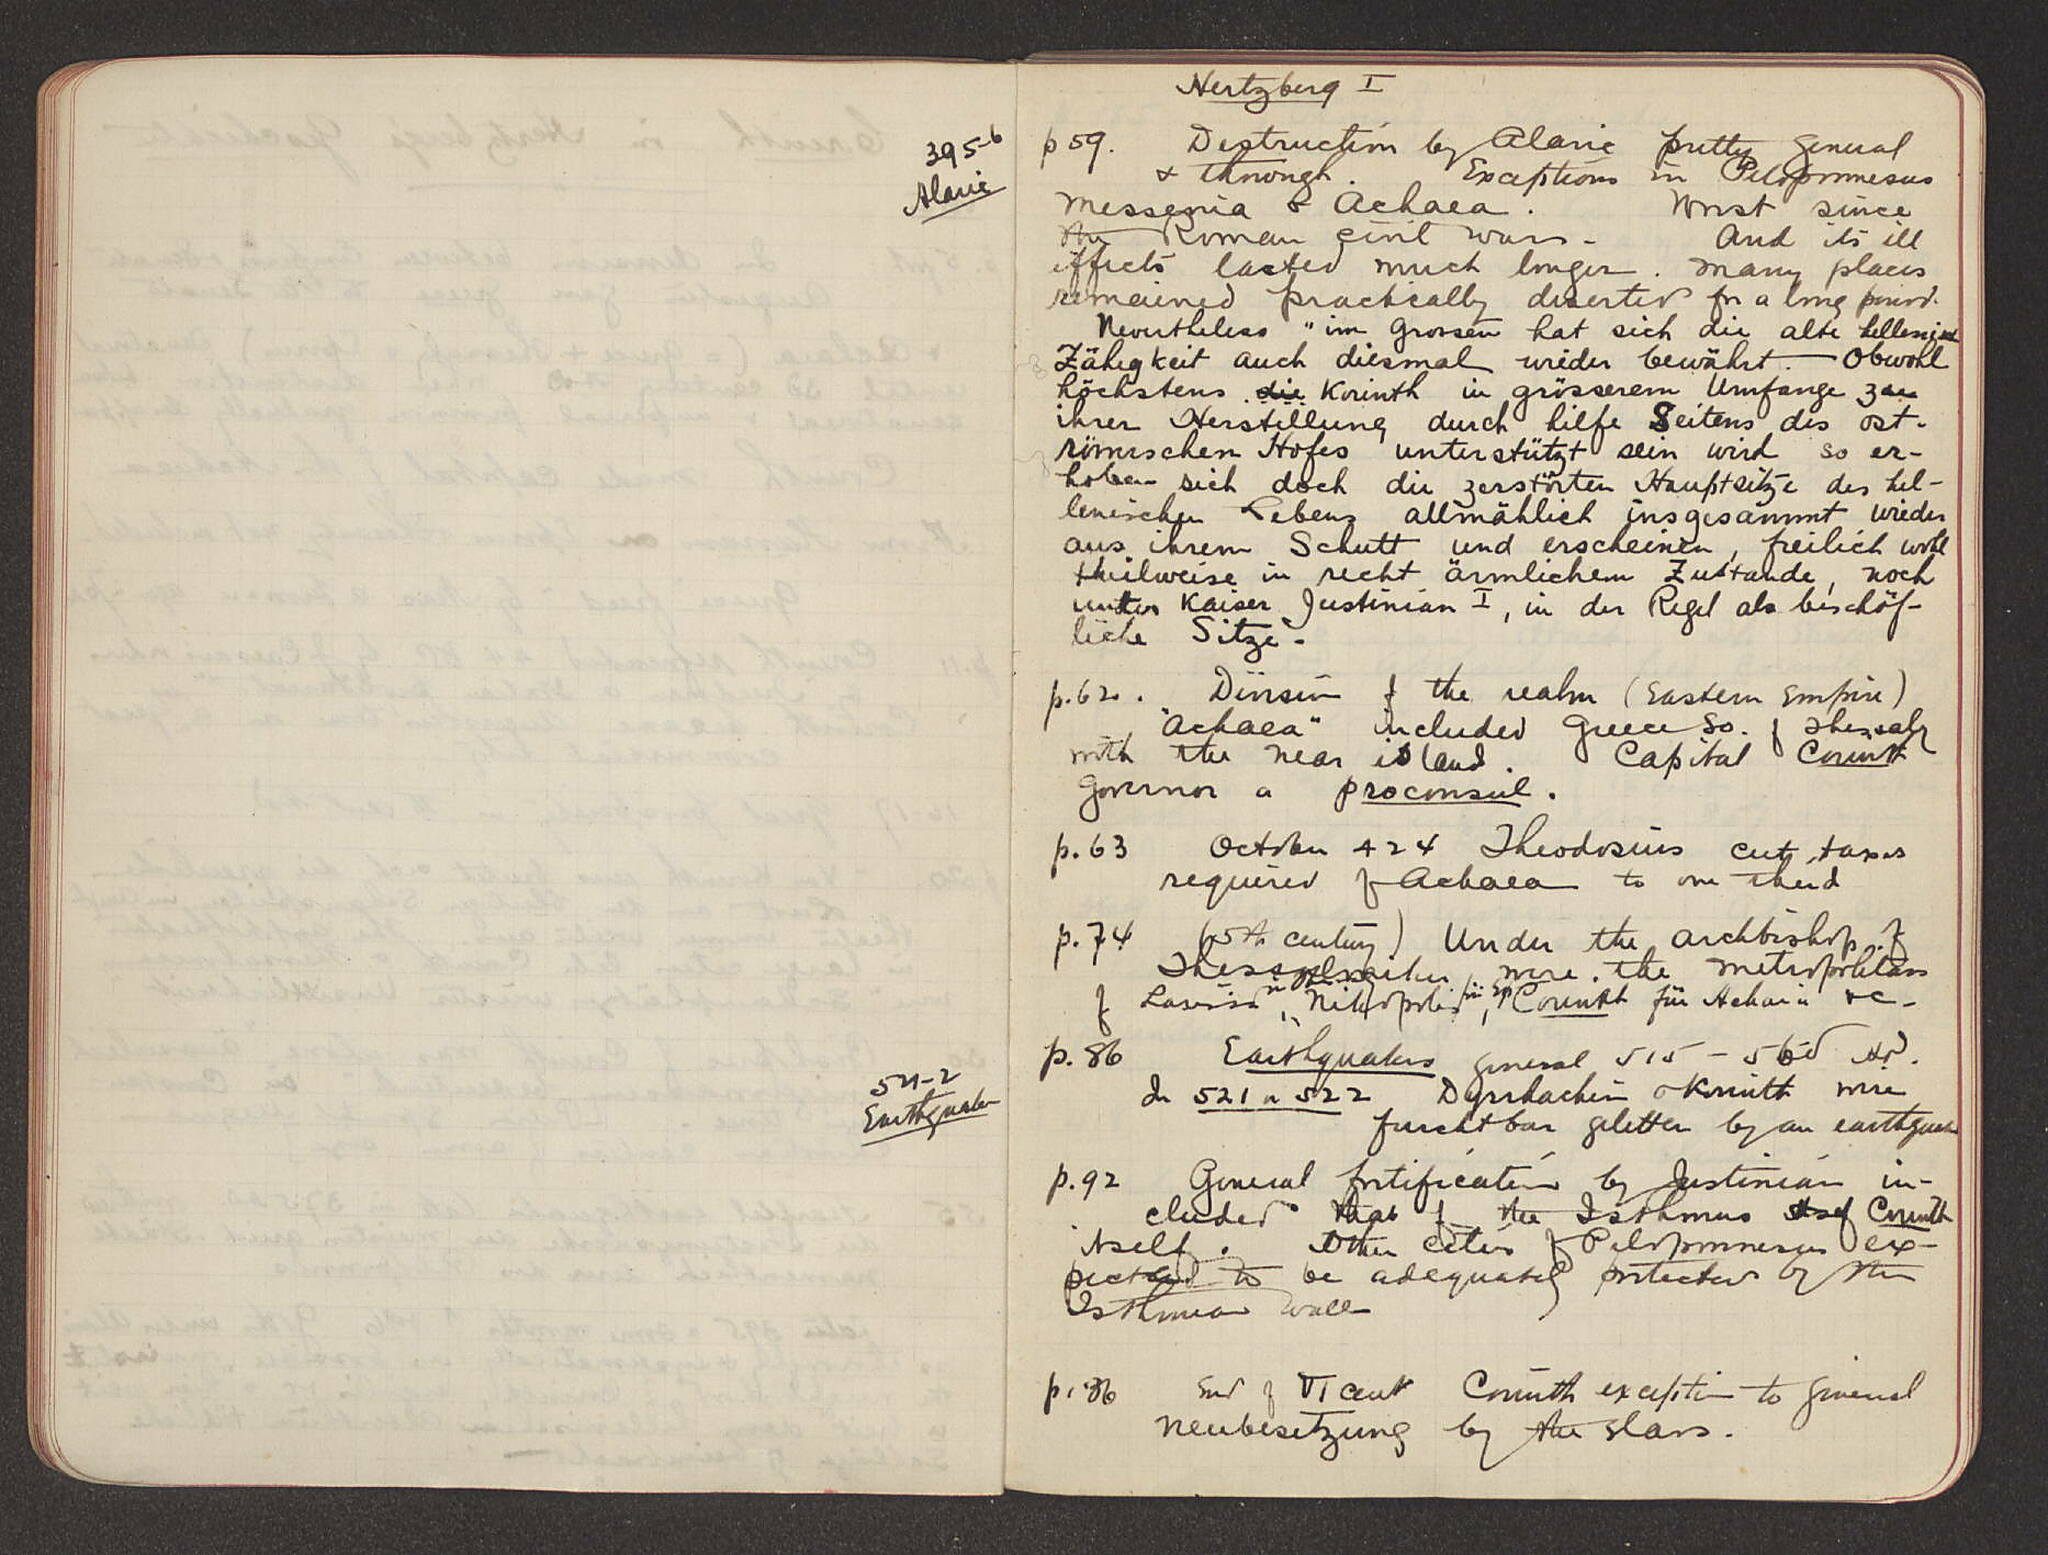 395-6
Alaric
521-2
Earthquake
Hertzberg I
p 59. Destruction by Alaric pretty general
& through. Exceptions in Peloponnesus
Messenia & Achaea. Worst since
the Roman civil wars - And its ill
effects lasted much longer. Many places
remained practically deserted for a long period.
Nevertheless "im Grossen hat sich die alte hellenische
Zähigkeit auch diesmal wieder bewährt. - Obwohl
höchstens die Korinth in grösserem Umfange zu
ihrer Herstellung durch hilfe Seitens des ost-
römischen Hofes unterstützt sein wird so er-
hoben sich doch die zerstörten Hauptsitze des hel-
lenischen Lebens allmählich insgesammt wieder
aus ihrem Schutt und erscheinen, freilich wohl
theilweise in recht ärmlichem Zustande, noch
unter Kaiser Justinian I, in der Regel als bischöf-
liche Sitze -
p. 62. Division of the realm (Eastern Empire)
"Achaea" included Greece So. of Thessaly
with the near island. Capital Corinth
Governor a proconsul.
p. 63 October 424 Theodosius cut taxes
required of Achaea to one third
p. 74 (5th century) Under the archbishop of
were the metropolitans
of Larissa, Nikopolis, Corinth für Achaia &c -
p. 86 Earthquakes general 515 - AD.
In 521 or 522 Dyrrhachium & Korinth were
furchtbar gelitten by an earthquake
p. 92 General fortification by Justinian in-
cluded that of the Isthmus & of Corinth
itself. Other cities of Peloponnesus ex-
pected to be adequately protected by the
Isthmian wall
End of VI cent Corinth exception to general
Neubesetzung by the Slavs.